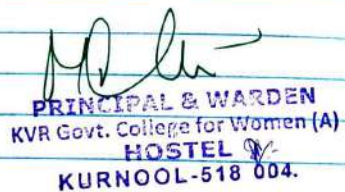 PRINCIPAL & WARDEN
KVR Govt. College for Women (A)
HOSTEL
KURNOOL-518 004.